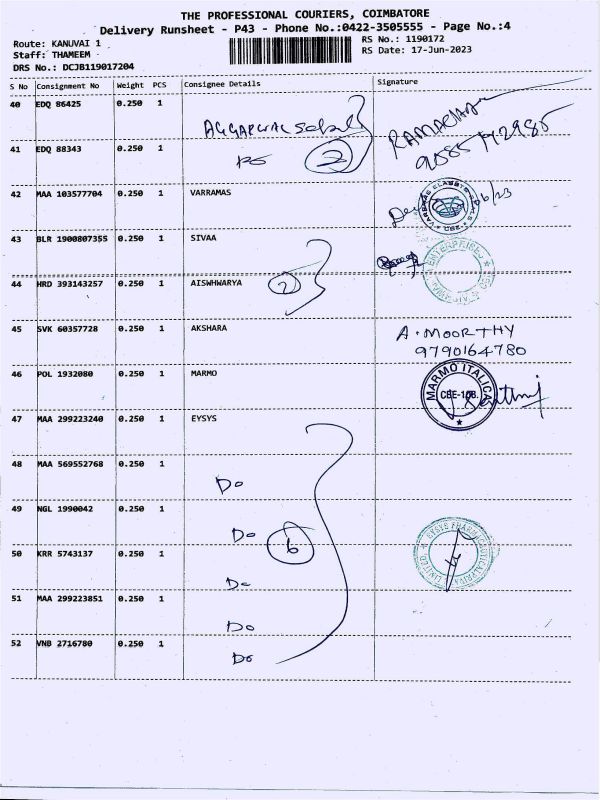 THE PROFESSIONAL COURIERS, COIMBATORE
Delivery Runsheet - P43 - Phone No.:0422-3505555 - Page No.:4
Route: KANUVAI 1
RS No.: 1190172
Staff: THAMEEM
RS Date: 17-Jun-2023
DRS No.: DCJB119017204
S No Consignment No Weight PCS Consignee Details Signature
40 EDQ 86425 0.250 1
AGGARWAL RAMARAJ
41 EDQ 88343 0.250 1
2
42 MAA 103577704 0.250 1 VARRAMAS
43 BLR 1900807355 0.250 1 SIVAA
ENTERPRISES
44 HRD 393143257 0.250 1 AISWHWARYA 2
45 SVK 60357728 0.250 1 AKSHARA A. MOORTHY
9790164780
46 POL 1932080 0.250 1 MARMO MARMO ITALICA
47 MAA 299223240 0.250 1 EYSYS
48 MAA 569552768 0.250 1 Do
49 NGL 1990042 0.250 1 Do 6
50 KRR 5743137 0.250 1 Do
EYSYS PHARMACEUTICAL PRIVATE LIMITED
51 MAA 299223851 0.250 1 Do
52 VNB 2716780 0.250 1 Do